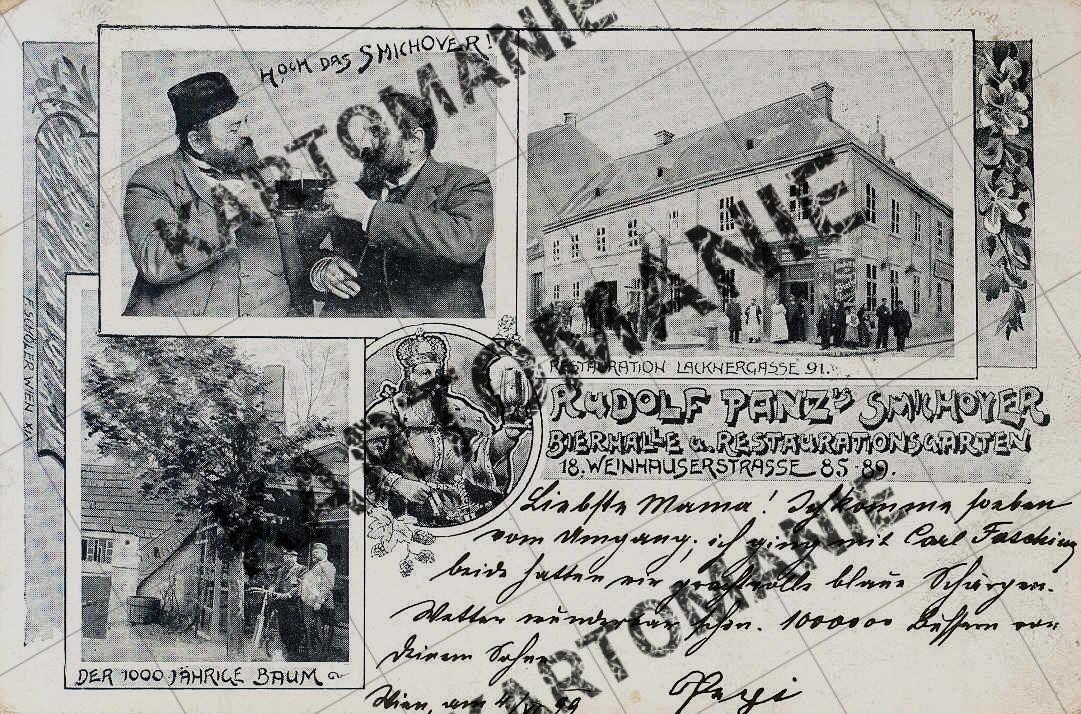 HOCH DAS SMICHOVER!
RESTAURATION LACKNERGASSE 91.
RUDOLF PANZ's SMICHOVER
BIERHALLE u. RESTAURATIONSGARTEN
18. WEINHAUSERSTRASSE 85-89.
F. SCHÖLER WIEN XIX
DER 1000 JÄHRIGE BAUM
Liebste Mama! Ich komme soeben
vom Umgang; ich ging mit Carl Fasching
beide hatten wir prachtvolle blaue Schärpen.
Wetter wunderbar schön. 1000000 Bussern von
Deinem Sohne
Pepi
Wien, am 4/ 99
KARTOMANIE
KARTOMANIE
KARTOMANIE